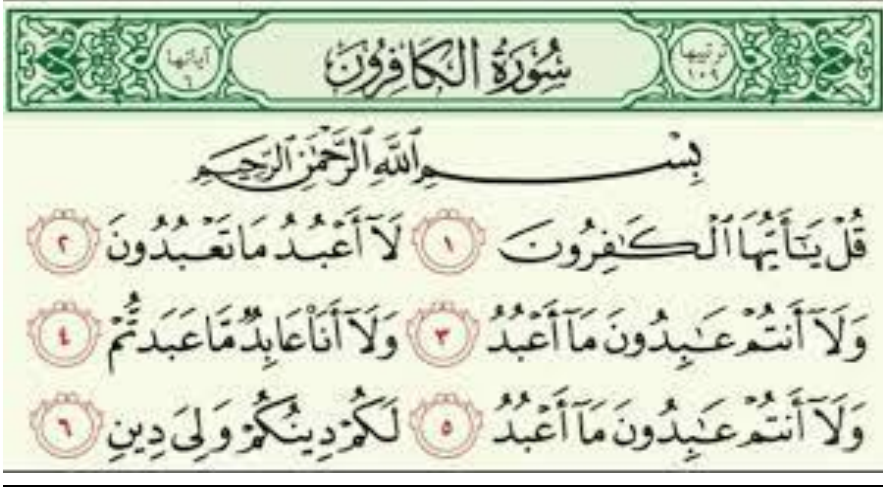 ترتيبها ١٠٩ سُورَةُ الكَافِرُونَ آياتها ٦
بِسْمِ ٱللَّهِ ٱلرَّحْمَٰنِ ٱلرَّحِيمِ
قُلْ يَـٰٓأَيُّهَا ٱلْكَـٰفِرُونَ ١ لَآ أَعْبُدُ مَا تَعْبُدُونَ ٢
وَلَآ أَنتُمْ عَـٰبِدُونَ مَآ أَعْبُدُ ٣ وَلَآ أَنَا۠ عَابِدٌ مَّا عَبَدتُّمْ ٤
وَلَآ أَنتُمْ عَـٰبِدُونَ مَآ أَعْبُدُ ٥ لَكُمْ دِينُكُمْ وَلِىَ دِينِ ٦